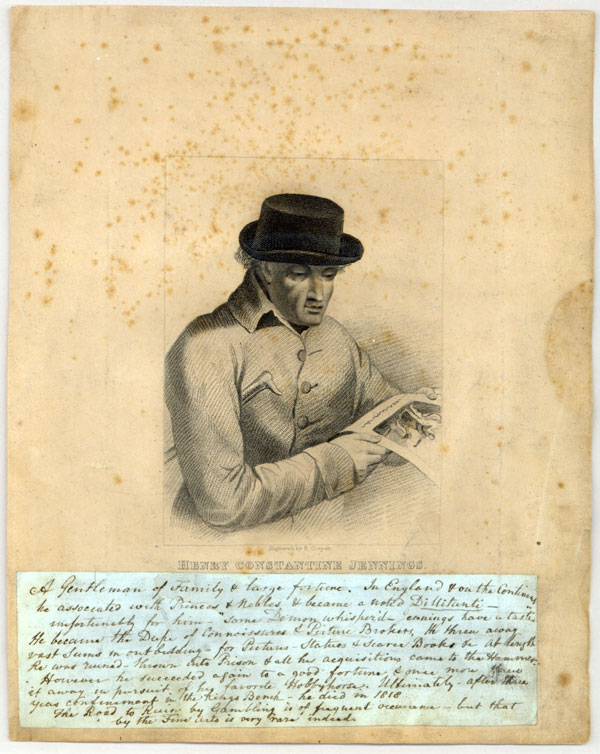 Engraved by R. Cooper.
HENRY CONSTANTINE JENNINGS.
A Gentleman of Family & large fortune. In England & on the Continent
he associated with Princes & Nobles, & became a noted Dillitanti —
unfortunately for him — some Demon whisper'd — Jennings have a taste.
He became the Dupe of Connoissures & Picture Brokers, He threw away
vast Sums in outbidding – for Pictures – Statues & Scarce Books &c At length
he was ruined – thrown into Prison & all his acquisitions came to the Hammer.
However he succeeded again to a good fortune, & once more threw
it away in pursuit of his favorite Hobbyhorse. Ultimately – after three
years confinement in the Kings Bench – he died in 1818
The Road to Ruin by Gambling is of frequent occurrence – but that
by the Fine Arts is very rare indeed.